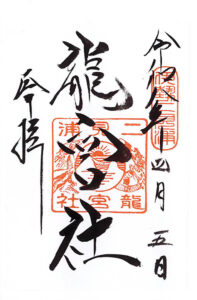 令和年四月五日
龍宮社
奉拝
二見浦
龍宮社